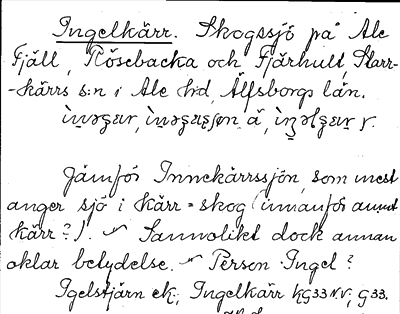 Ingelkärr. Skogssjö på Ale
Fjäll, Nösebacka och Fjärhult, Starr-
-kärrs s:n i Ale hd, Älfsborgs län.
Jämför Innekärrssjön, som mest
anger sjö i kärr = skog (innanför annat
kärr?). Sannolikt dock annan
oklar betydelse. Person Ingel?
Igelstjärn ek., Ingelkärr kG33 N.V., G33.